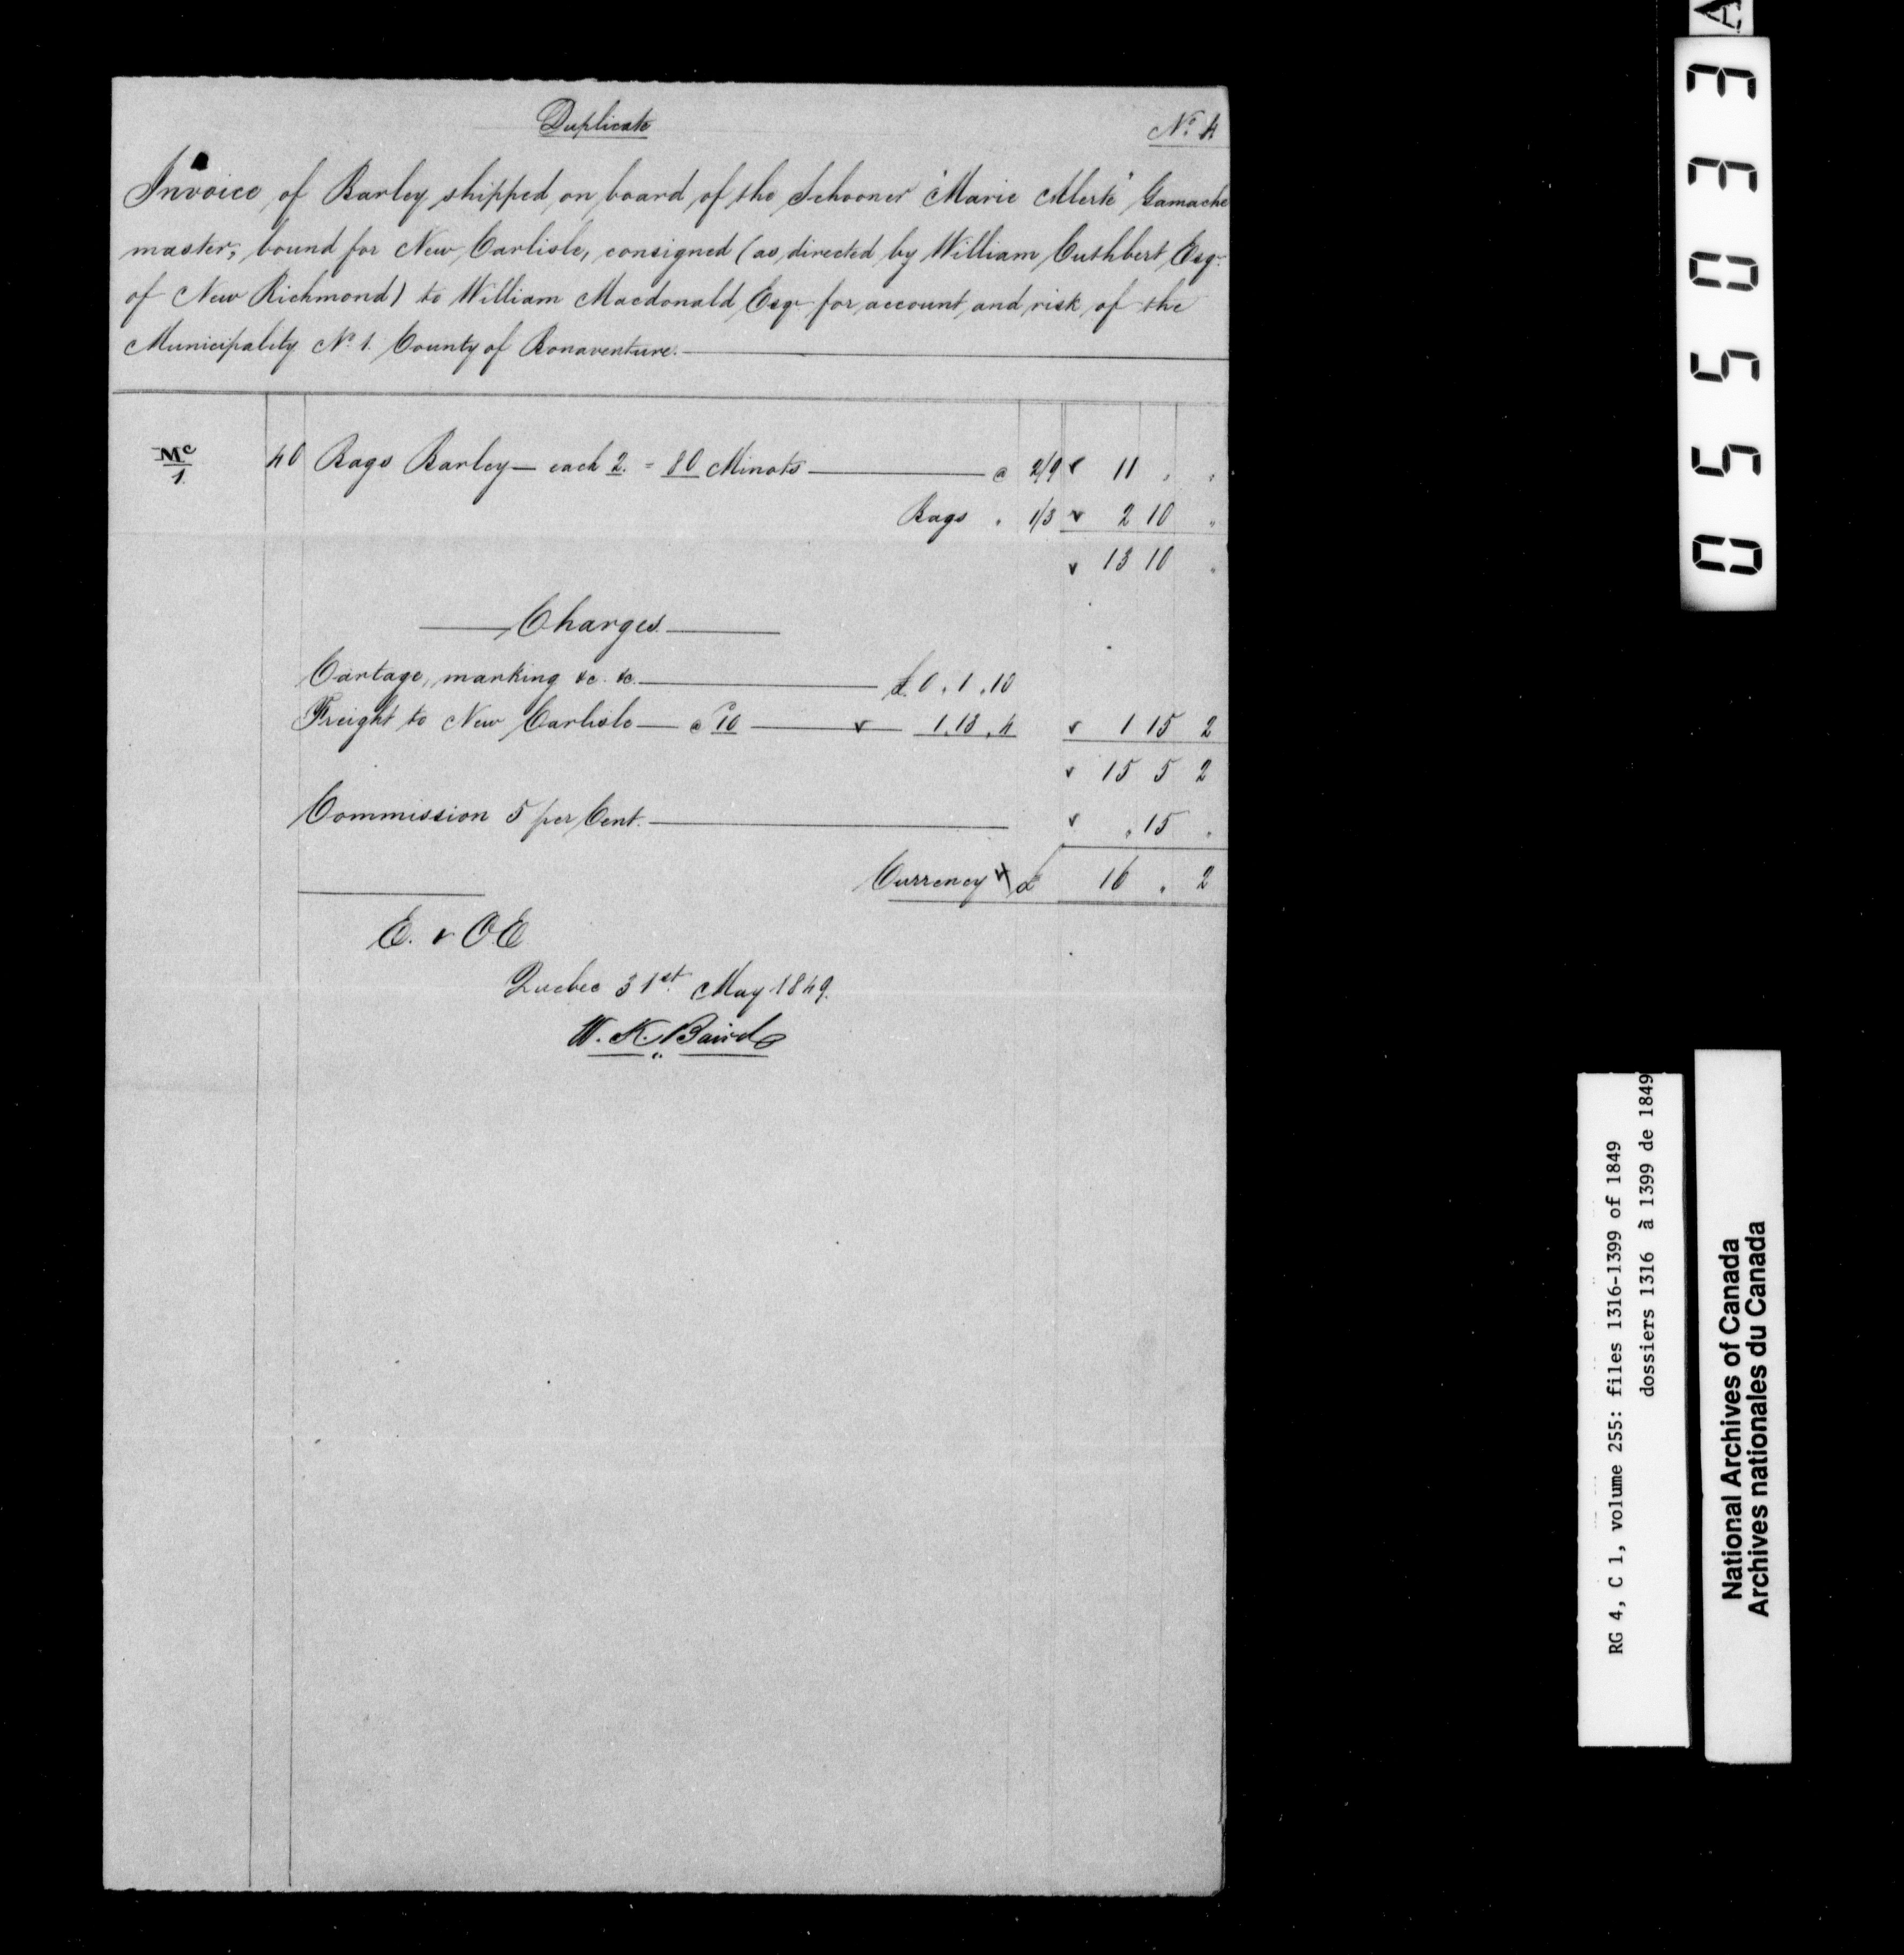 Duplicate
No. 4
Invoice of Barley shipped on board of the Schooner "Marie Alerte" Gamache
master, bound for New Carlisle, consigned (as directed by William Cuthbert Esqr.
of New Richmond) to William Macdonald Esqr for account and risk of the
Municipality No. 1. County of Bonaventure.
Mc/1 40 Bags Barley — each 2. = 80 Minots — @ 2/9 11 " "
Bags " 1/3 2 10 "
13 10 "
Charges
Cartage, marking &c. &c. £ 0. 1. 10
Freight to New Carlisle — @ 10 — 1. 13. 4 1 15 2
15 5 2
Commission 5 per Cent. " 15 "
Currency £ 16 " 2
E. & O.E
Quebec 31st. May 1849.
W. K. Baird
A
055033
RG 4, C 1, volume 255: files 1316-1399 of 1849
dossiers 1316 à 1399 de 1849
National Archives of Canada
Archives nationales du Canada